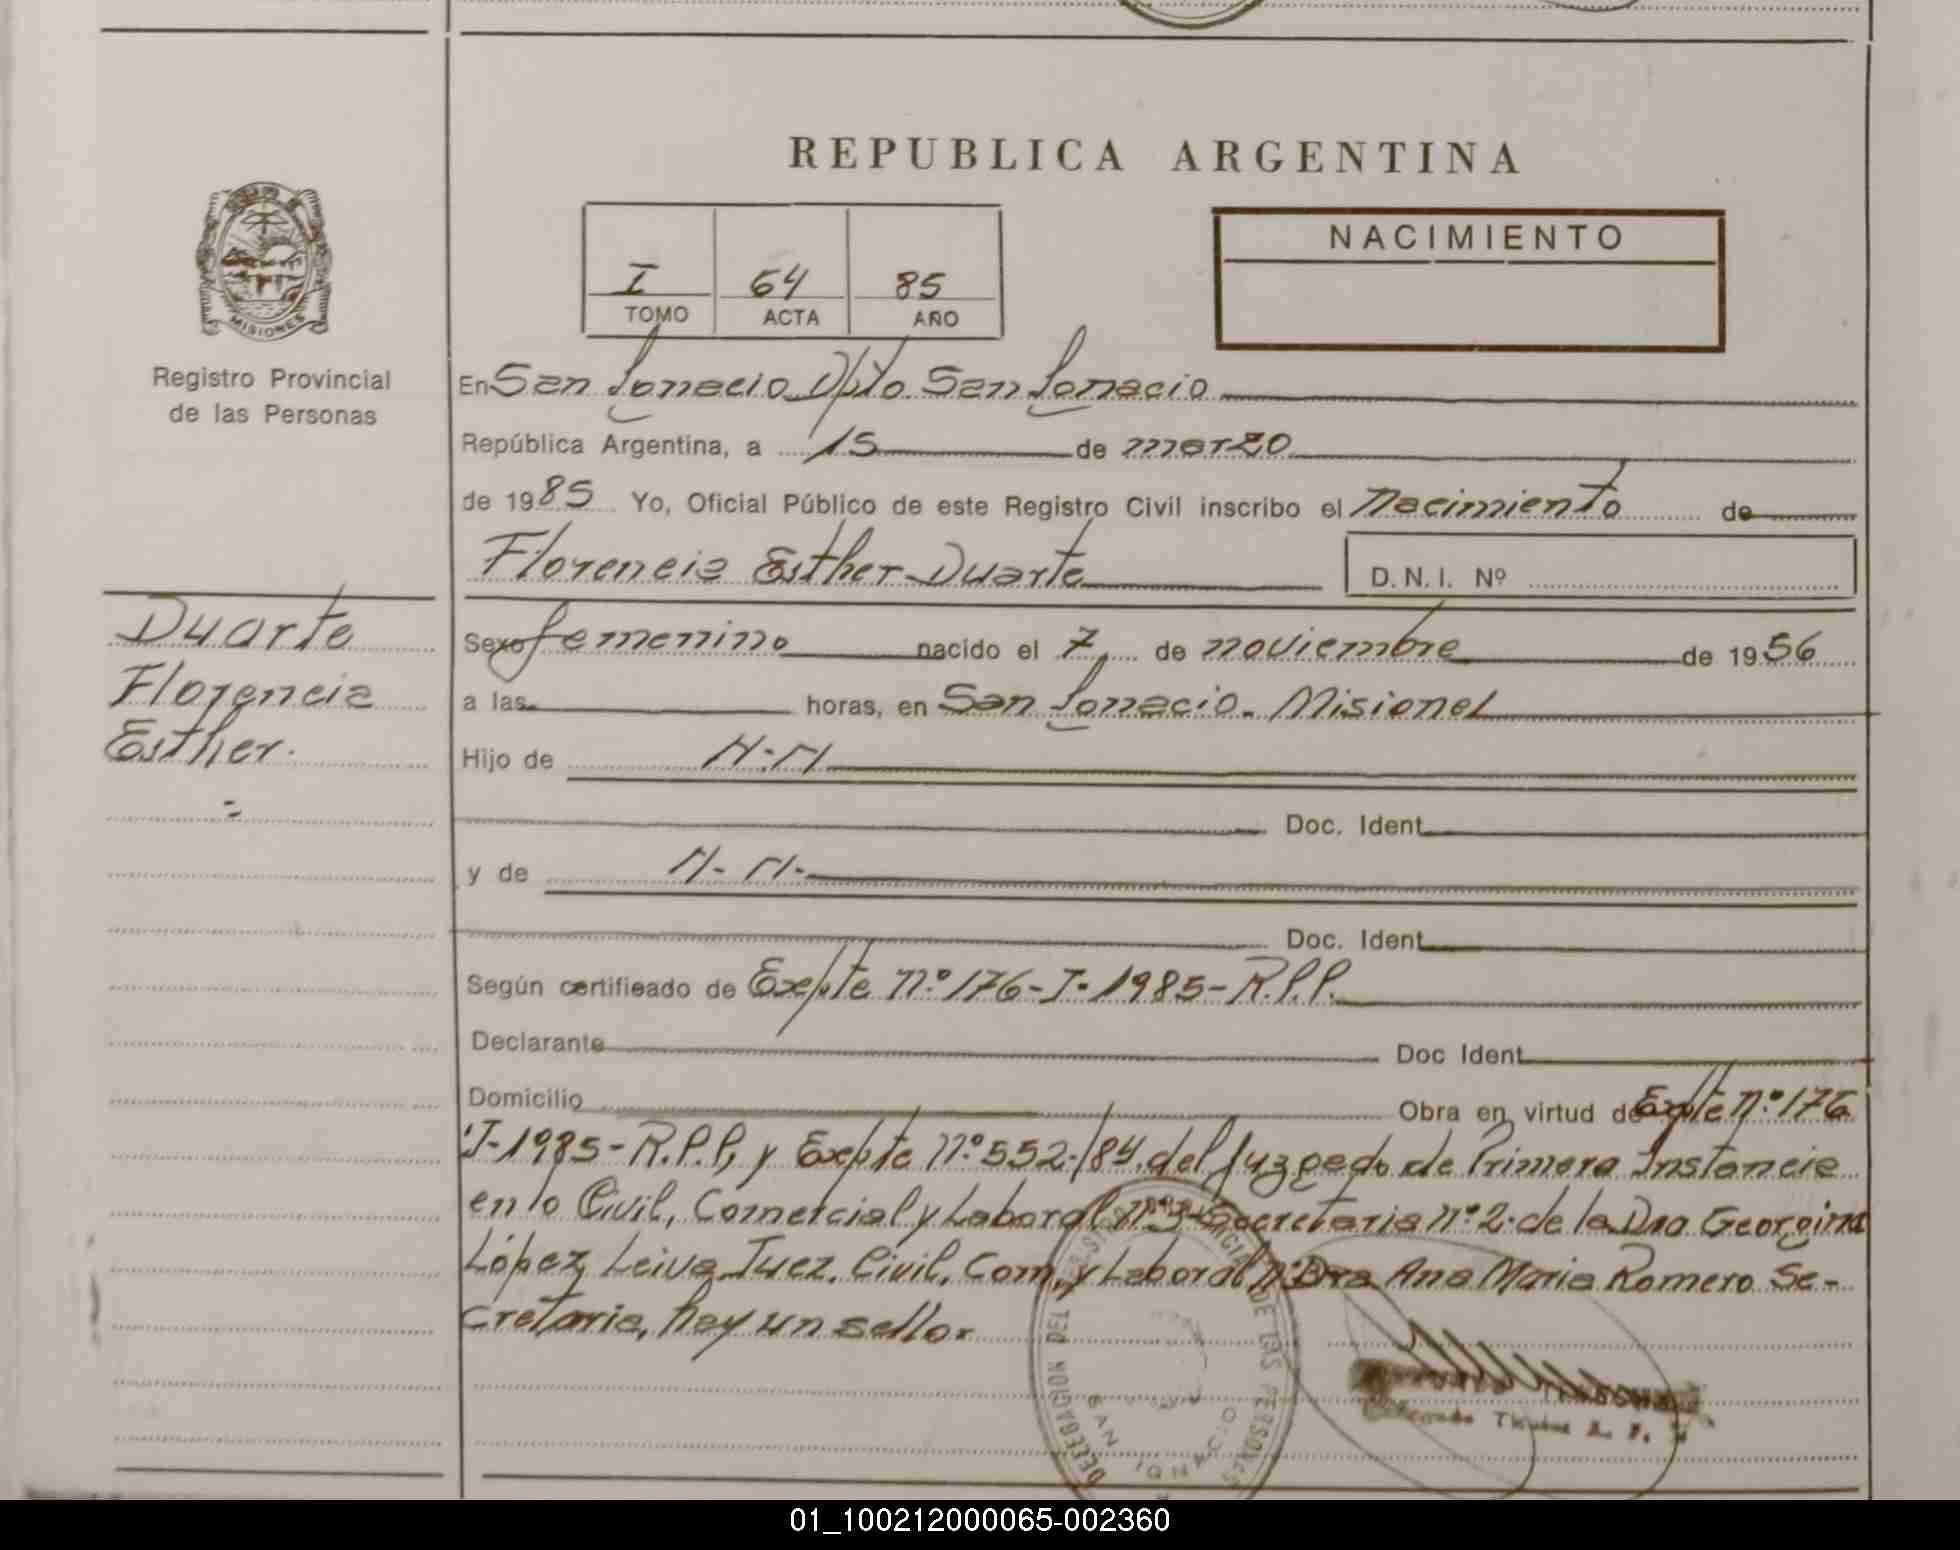 REPUBLICA ARGENTINA
NACIMIENTO
I 64 85
TOMO ACTA AÑO
MISIONES
Registro Provincial
de las Personas
En San Ignacio Dpto. San Ignacio
República Argentina, a 15 de marzo
de 1985 Yo, Oficial Público de este Registro Civil inscribo el Nacimiento de
Florencia Esther Duarte
D.N.I. Nº
Duarte
Florencia
Esther.
Sexo femenino nacido el 7 de noviembre de 1956
a las horas, en San Ignacio. Misiones
Hijo de N.N
Doc. Ident.
y de N-N-
Doc. Ident.
Según certificado de Expte nº 176-I-1985-R.P.P.
Declarante Doc Ident.
Domicilio Obra en virtud de Expte nº 176
I-1985-R.P.P, y Expte nº 552-/84 del Juzgado de Primera Instancia
en lo Civil, Comercial y Laboral Secretaria nº 2 de la Dra Georgina
López Leiva Juez. Civil, Com. y Laboral Dra Ana Maria Romero Se-
cretaria, hay un sello.
DELEGACION DEL REGISTRO PROVINCIAL DE LAS PERSONAS
SAN IGNACIO
01_100212000065-002360